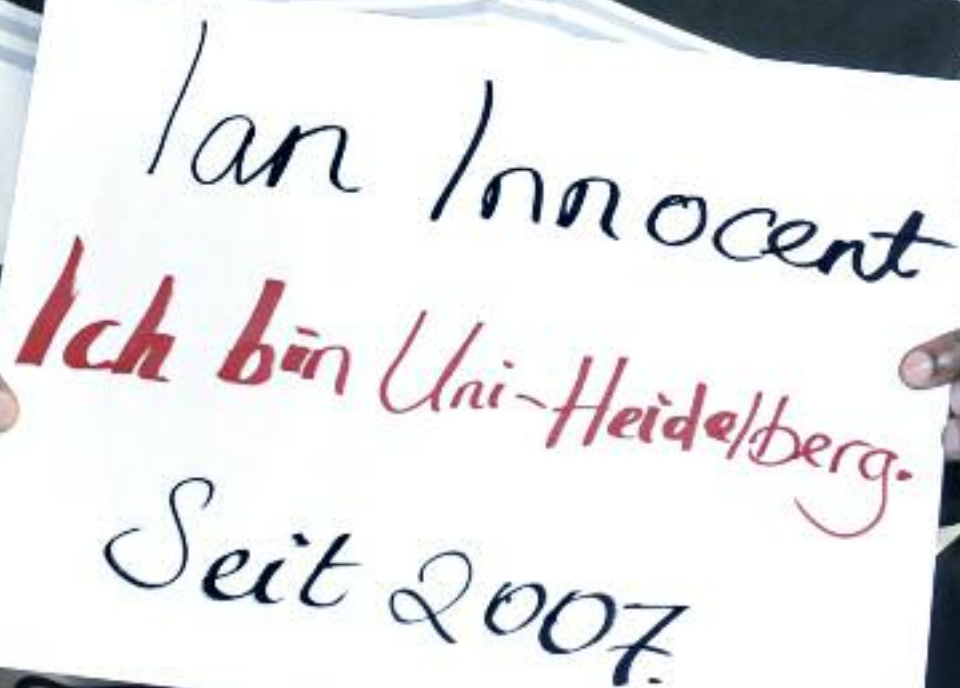 Ian Innocent
Ich bin Uni-Heidelberg.
Seit 2007.